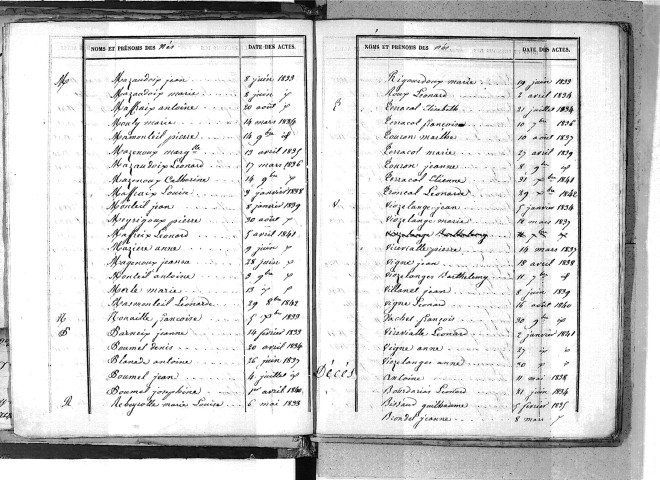 NOMS ET PRÉNOMS DES Nés DATE DES ACTES.
M Mazaudoix jean 8 juin 1833
Mazaudoix marie 8 juin
Maffraix antoine 20 août
Monly marie 14 mars 1834
Mamonteil pierre 14 9bre
Mazenoux 13 avril 1835
Mazaudoix Léonard 17 mars 1836
Mazenoux Catherine 14 9bre
Maffraix Louise 8 janvier 1838
Monteil jean 8 janvier 1839
Meyrigoux pierre 30 août
Mafreix Léonard 5 avril 1841
Maziere anne 9 juin
Magenoux jeanne 28 juin
Monteil antoine 8 9bre
Morle marie 13
Masmonteil Léonarde 29 8bre 1842
N Nouaille françoise 5 Xbre 1833
P Parneix jeanne 14 février 1833
denis 20 avril 1834
antoine 26 juin 1837
jean 4 juillet
joséphine 1er avril 1840
R Rebeyrolle marie Louise 6 mai 1833
NOMS ET PRÉNOMS DES Nés DATE DES ACTES.
Rigaudoux marie 19 juin 1833
Roux Léonard 2 avril 1834
Terracol Elisabeth 21 juillet 1834
Terracol françoise 10 7bre 1836
Touron marthe 10 août 1837
Terracol marie 27 avril 1839
Touron jeanne 8 9bre
Terracol Etienne 31 Xbre 1841
Tronial Léonarde 29 Xbre 1842
V Viozelange jean 5 janvier 1834
Viozelange marie 18 mars 1837
Virevialle pierre 14 mars 1837
Vigne jean 18 avril 1838
Viozelanges Barthélemy 11 7bre
Villanet jean 8 juin 1839
Vigne Léonard 16 août 1840
Vachet françois 30 9bre
Virevialle Léonard 2 janvier 1841
Vigne anne 27
Viozelanges anne 30
Décès
Antoine 11 mai 1838
Bourdarias Léonard 21 juin 1834
Bissaud guilhaume 5 février 1835
Blondel jeanne 8 mars